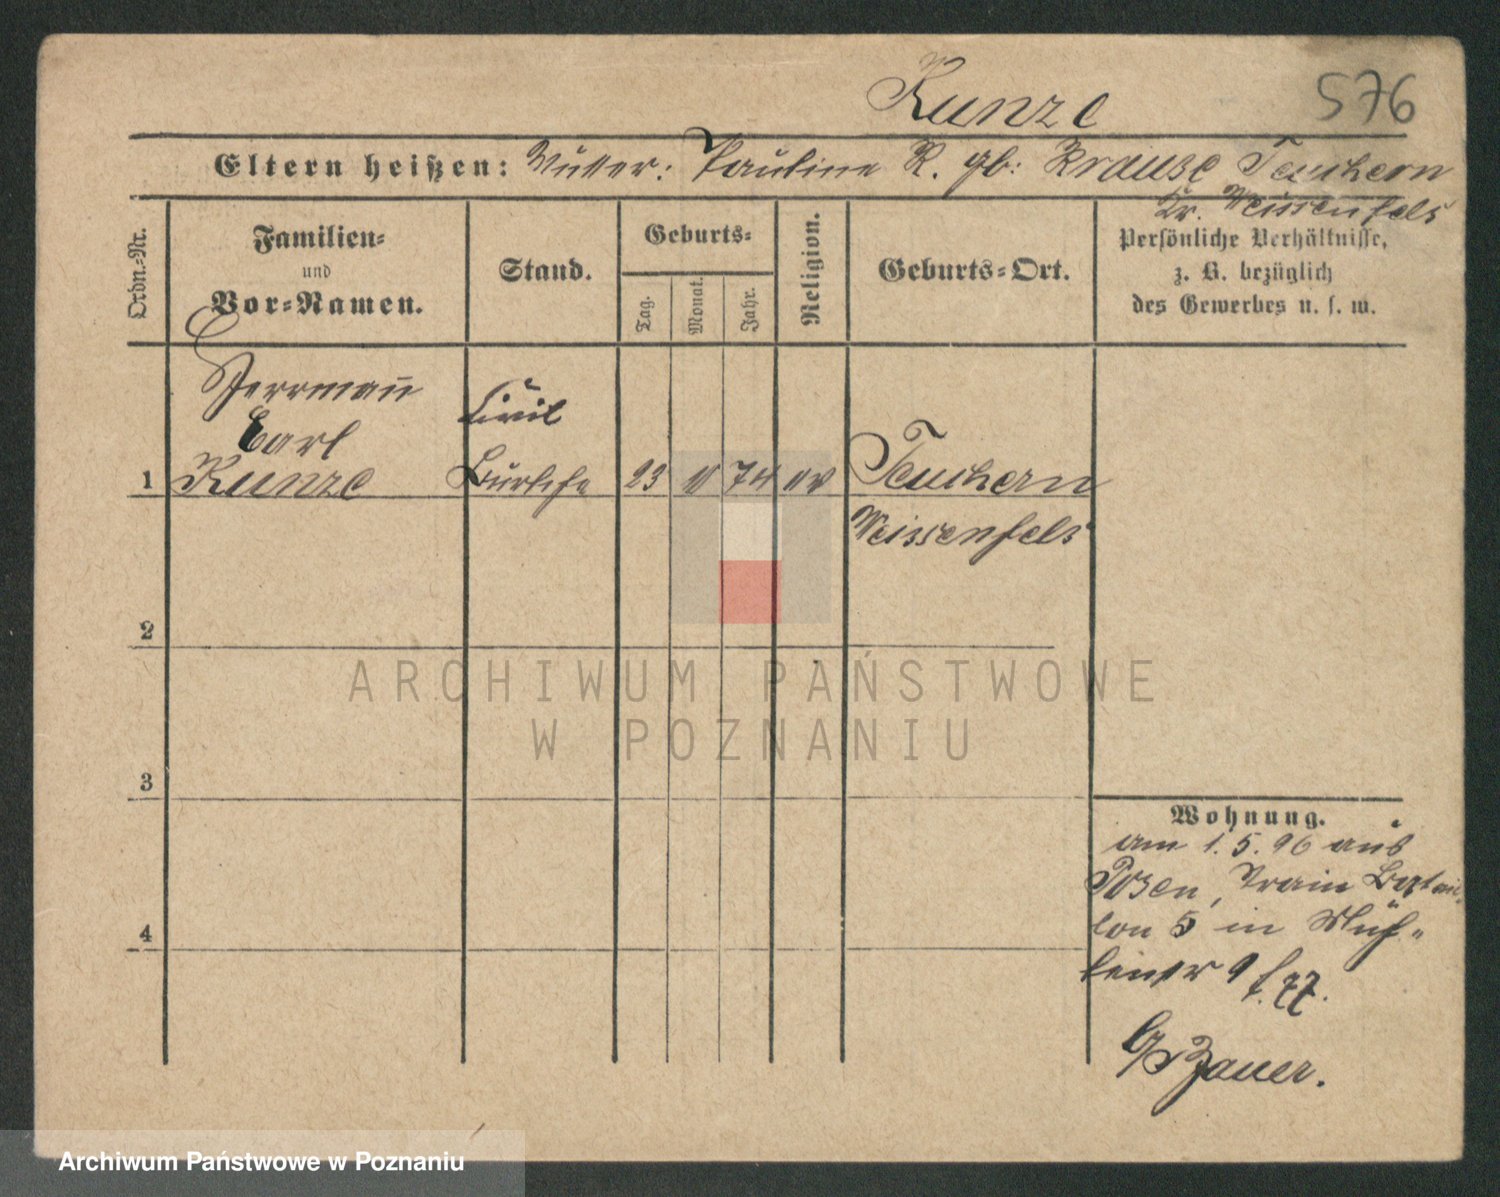 Kunze
576
Eltern heißen: Mutter: Pauline K. gb: Krause Teuchern
Kr. Weissenfels
Ordn.-Nr.
Familien-
und
Vor-Namen.
Stand.
Geburts-
Tag.
Monat.
Jahr.
Religion.
Geburts-Ort.
Persönliche Verhältnisse,
z. B. bezüglich
des Gewerbes u. s. w.
Herrmañ
Carl
1 Kunze
Civil
Bursche
23
74
ev
Teuchern
Weissenfels
2
3
4
Wohnung.
am 1. 5. 96 aus
Posen, Train Batail-
lon 5 in
9
Bauer.
ARCHIWUM PAŃSTWOWE
W POZNANIU
Archiwum Państwowe w Poznaniu